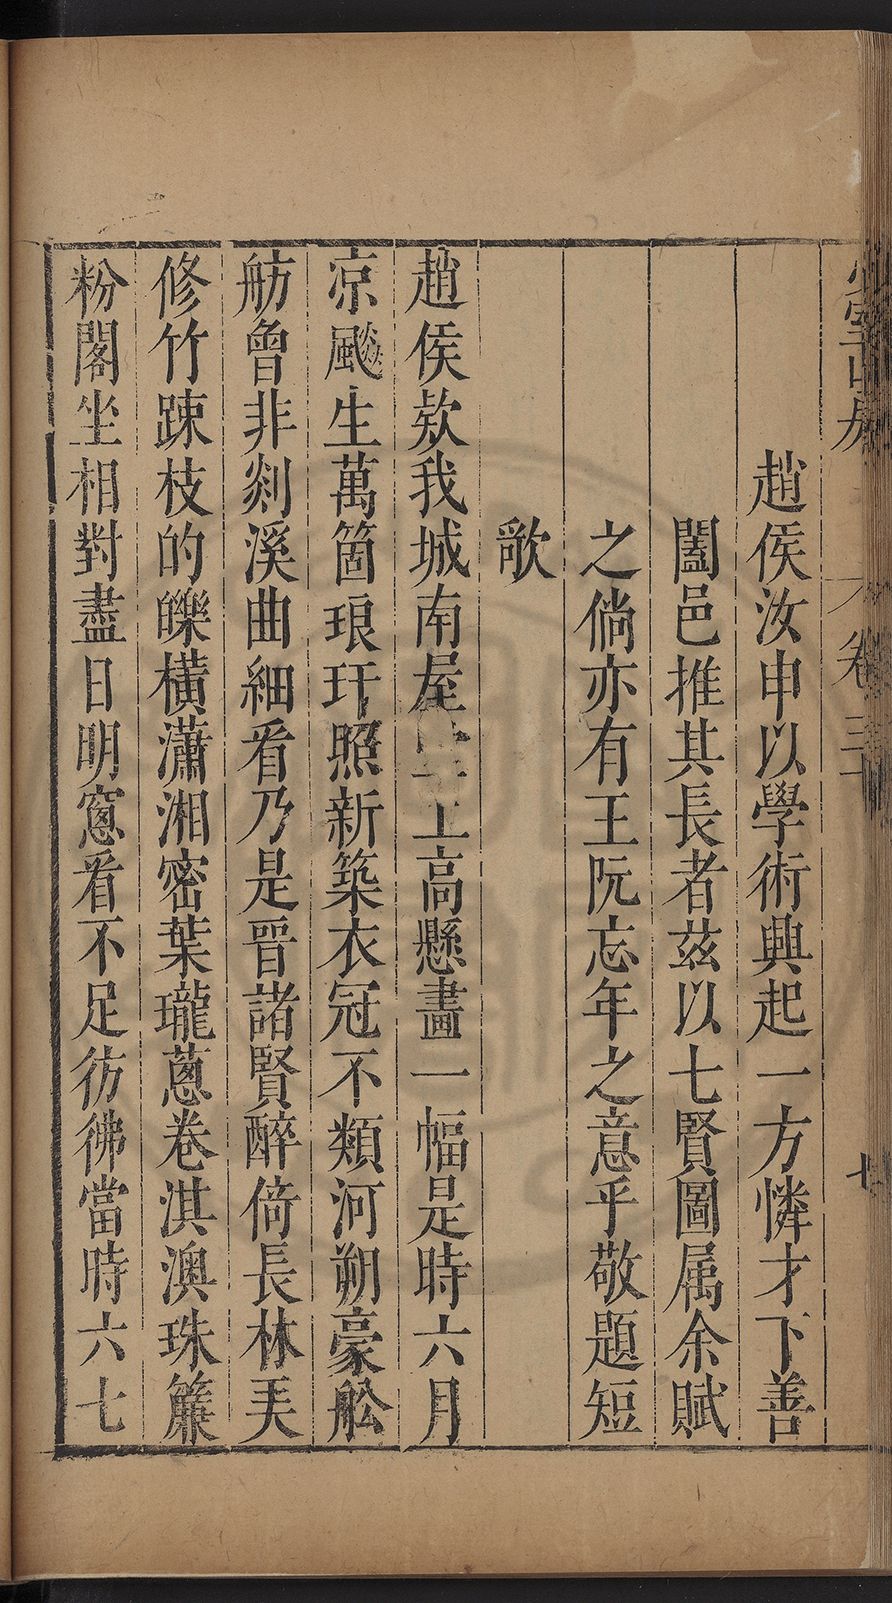 趙侯汝申以學術興起一方憐才下善
闔邑推其長者茲以七賢圖属余賦
之倘亦有王阮忘年之意乎敬題短
歌
趙侯欵我城南屋上高懸畫一幅是時六月
凉颷生萬箇琅玕照新築衣冠不類河朔豪舩
舫曾非剡溪曲細看乃是晋諸賢醉倚長林美
修竹踈枝的皪橫瀟湘密葉瓏蔥卷淇澳珠簾
粉閣坐相對盡日明窻看不足彷彿當時六七
卷三
七